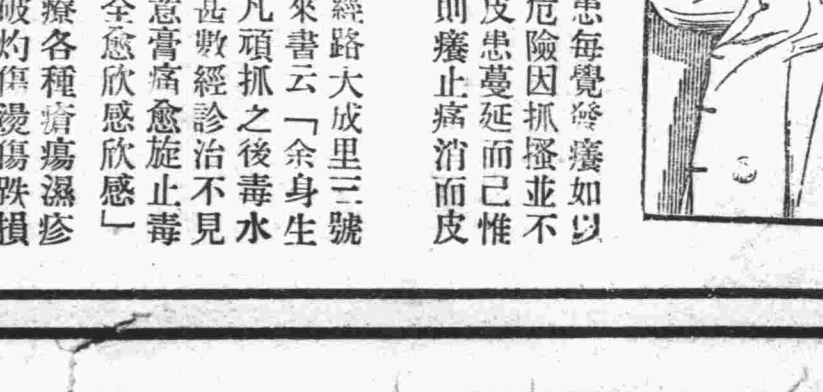 患每覺發癢如以
危險因抓搔並不
皮患蔓延而已惟
則癢止痛消而皮
經路大成里三號
來書云「余身生
凡頑抓之後毒水
甚數經診治不見
意膏痛愈旋止毒
全愈欣感欣感」
療各種瘡瘍濕疹
破灼傷燙傷跌損